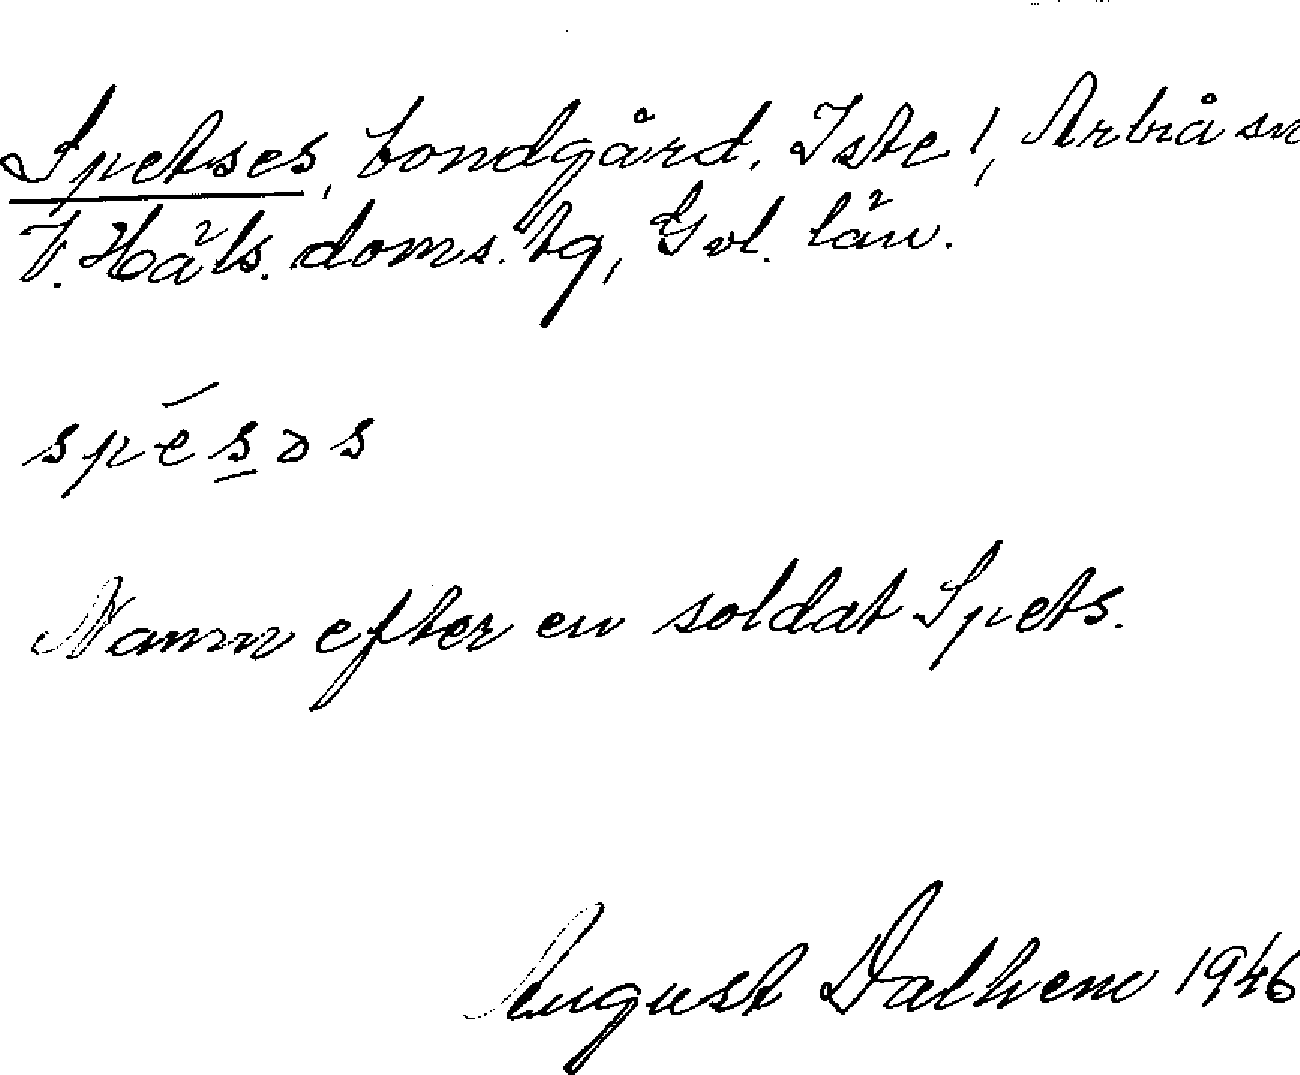 Spetses, bondgård. Iste 1, Arbrå sn
V. Häls. doms. tg, Gvl. län.
spésəs
Namn efter en soldat Spets.
August Dalhem 1946